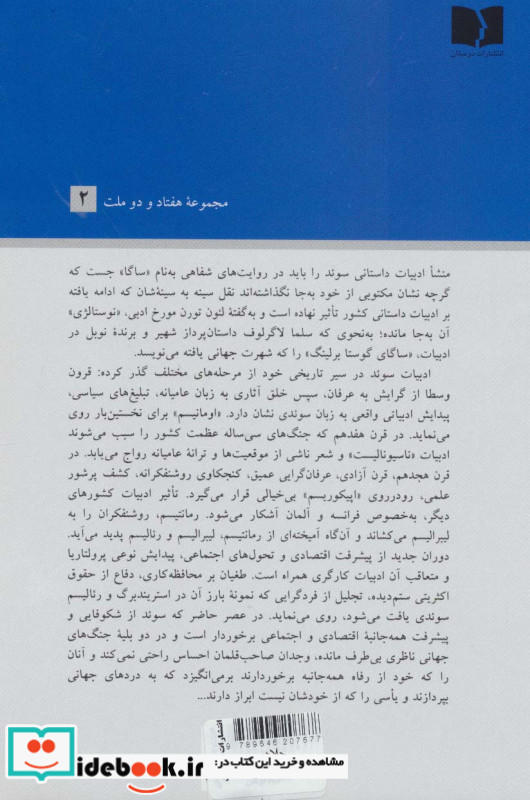 انتشارات درسخوان
مجموعهٔ هفتاد و دو ملت ۲
منشأ ادبیات داستانی سوئد را باید در روایت‌های شفاهی به‌نام «ساگا» جست که
گرچه نشان مکتوبی از خود به‌جا نگذاشته‌اند نقل سینه به سینه‌شان که ادامه یافته
بر ادبیات داستانی کشور تأثیر نهاده است و به‌گفتهٔ لئون تورن مورخ ادبی، «نوستالژی»
آن به‌جا مانده؛ به‌نحوی که سلما لاگرلوف داستان‌پرداز شهیر و برندهٔ نوبل در
ادبیات، «ساگای گوستا برلینگ» را که شهرت جهانی یافته می‌نویسد.
ادبیات سوئد در سیر تاریخی خود از مرحله‌های مختلف گذر کرده: قرون
وسطا از گرایش به عرفان، سپس خلق آثاری به زبان عامیانه، تبلیغ‌های سیاسی،
پیدایش ادبیاتی واقعی به زبان سوئدی نشان دارد. «اومانیسم» برای نخستین‌بار روی
می‌نماید. در قرن هفدهم که جنگ‌های سی‌ساله عظمت کشور را سبب می‌شوند
ادبیات «ناسیونالیست» و شعر ناشی از موقعیت‌ها و ترانهٔ عامیانه رواج می‌یابد. در
قرن هجدهم، قرن آزادی، عرفان‌گرایی عمیق، کنجکاوی روشنفکرانه، کشف پرشور
علمی، رودرروی «اپیکوریسم» بی‌خیالی قرار می‌گیرد. تأثیر ادبیات کشورهای
دیگر، به‌خصوص فرانسه و آلمان آشکار می‌شود. رمانتیسم، روشنفکران را به
لیبرالیسم می‌کشاند و آن‌گاه آمیخته‌ای از رمانتیسم، لیبرالیسم و رئالیسم پدید می‌آید.
دوران جدید از پیشرفت اقتصادی و تحول‌های اجتماعی، پیدایش نوعی پرولتاریا
و متعاقب آن ادبیات کارگری همراه است. طغیان بر محافظه‌کاری، دفاع از حقوق
اکثریتی ستم‌دیده، تجلیل از فردگرایی که نمونهٔ بارز آن در استریندبرگ و رئالیسم
سوئدی یافت می‌شود، روی می‌نماید. در عصر حاضر که سوئد از شکوفایی و
پیشرفت همه‌جانبهٔ اقتصادی و اجتماعی برخوردار است و در دو بلیهٔ جنگ‌های
جهانی ناظری بی‌طرف مانده، وجدان صاحب‌قلمان احساس راحتی نمی‌کند و آنان
را که خود از رفاه همه‌جانبه برخوردارند برمی‌انگیزد که به دردهای جهانی
بپردازند و یأسی را که از خودشان نیست ابراز دارند...
انتشارات
9 789646 207677
مشاهده و خرید این کتاب در:
idebook.ir